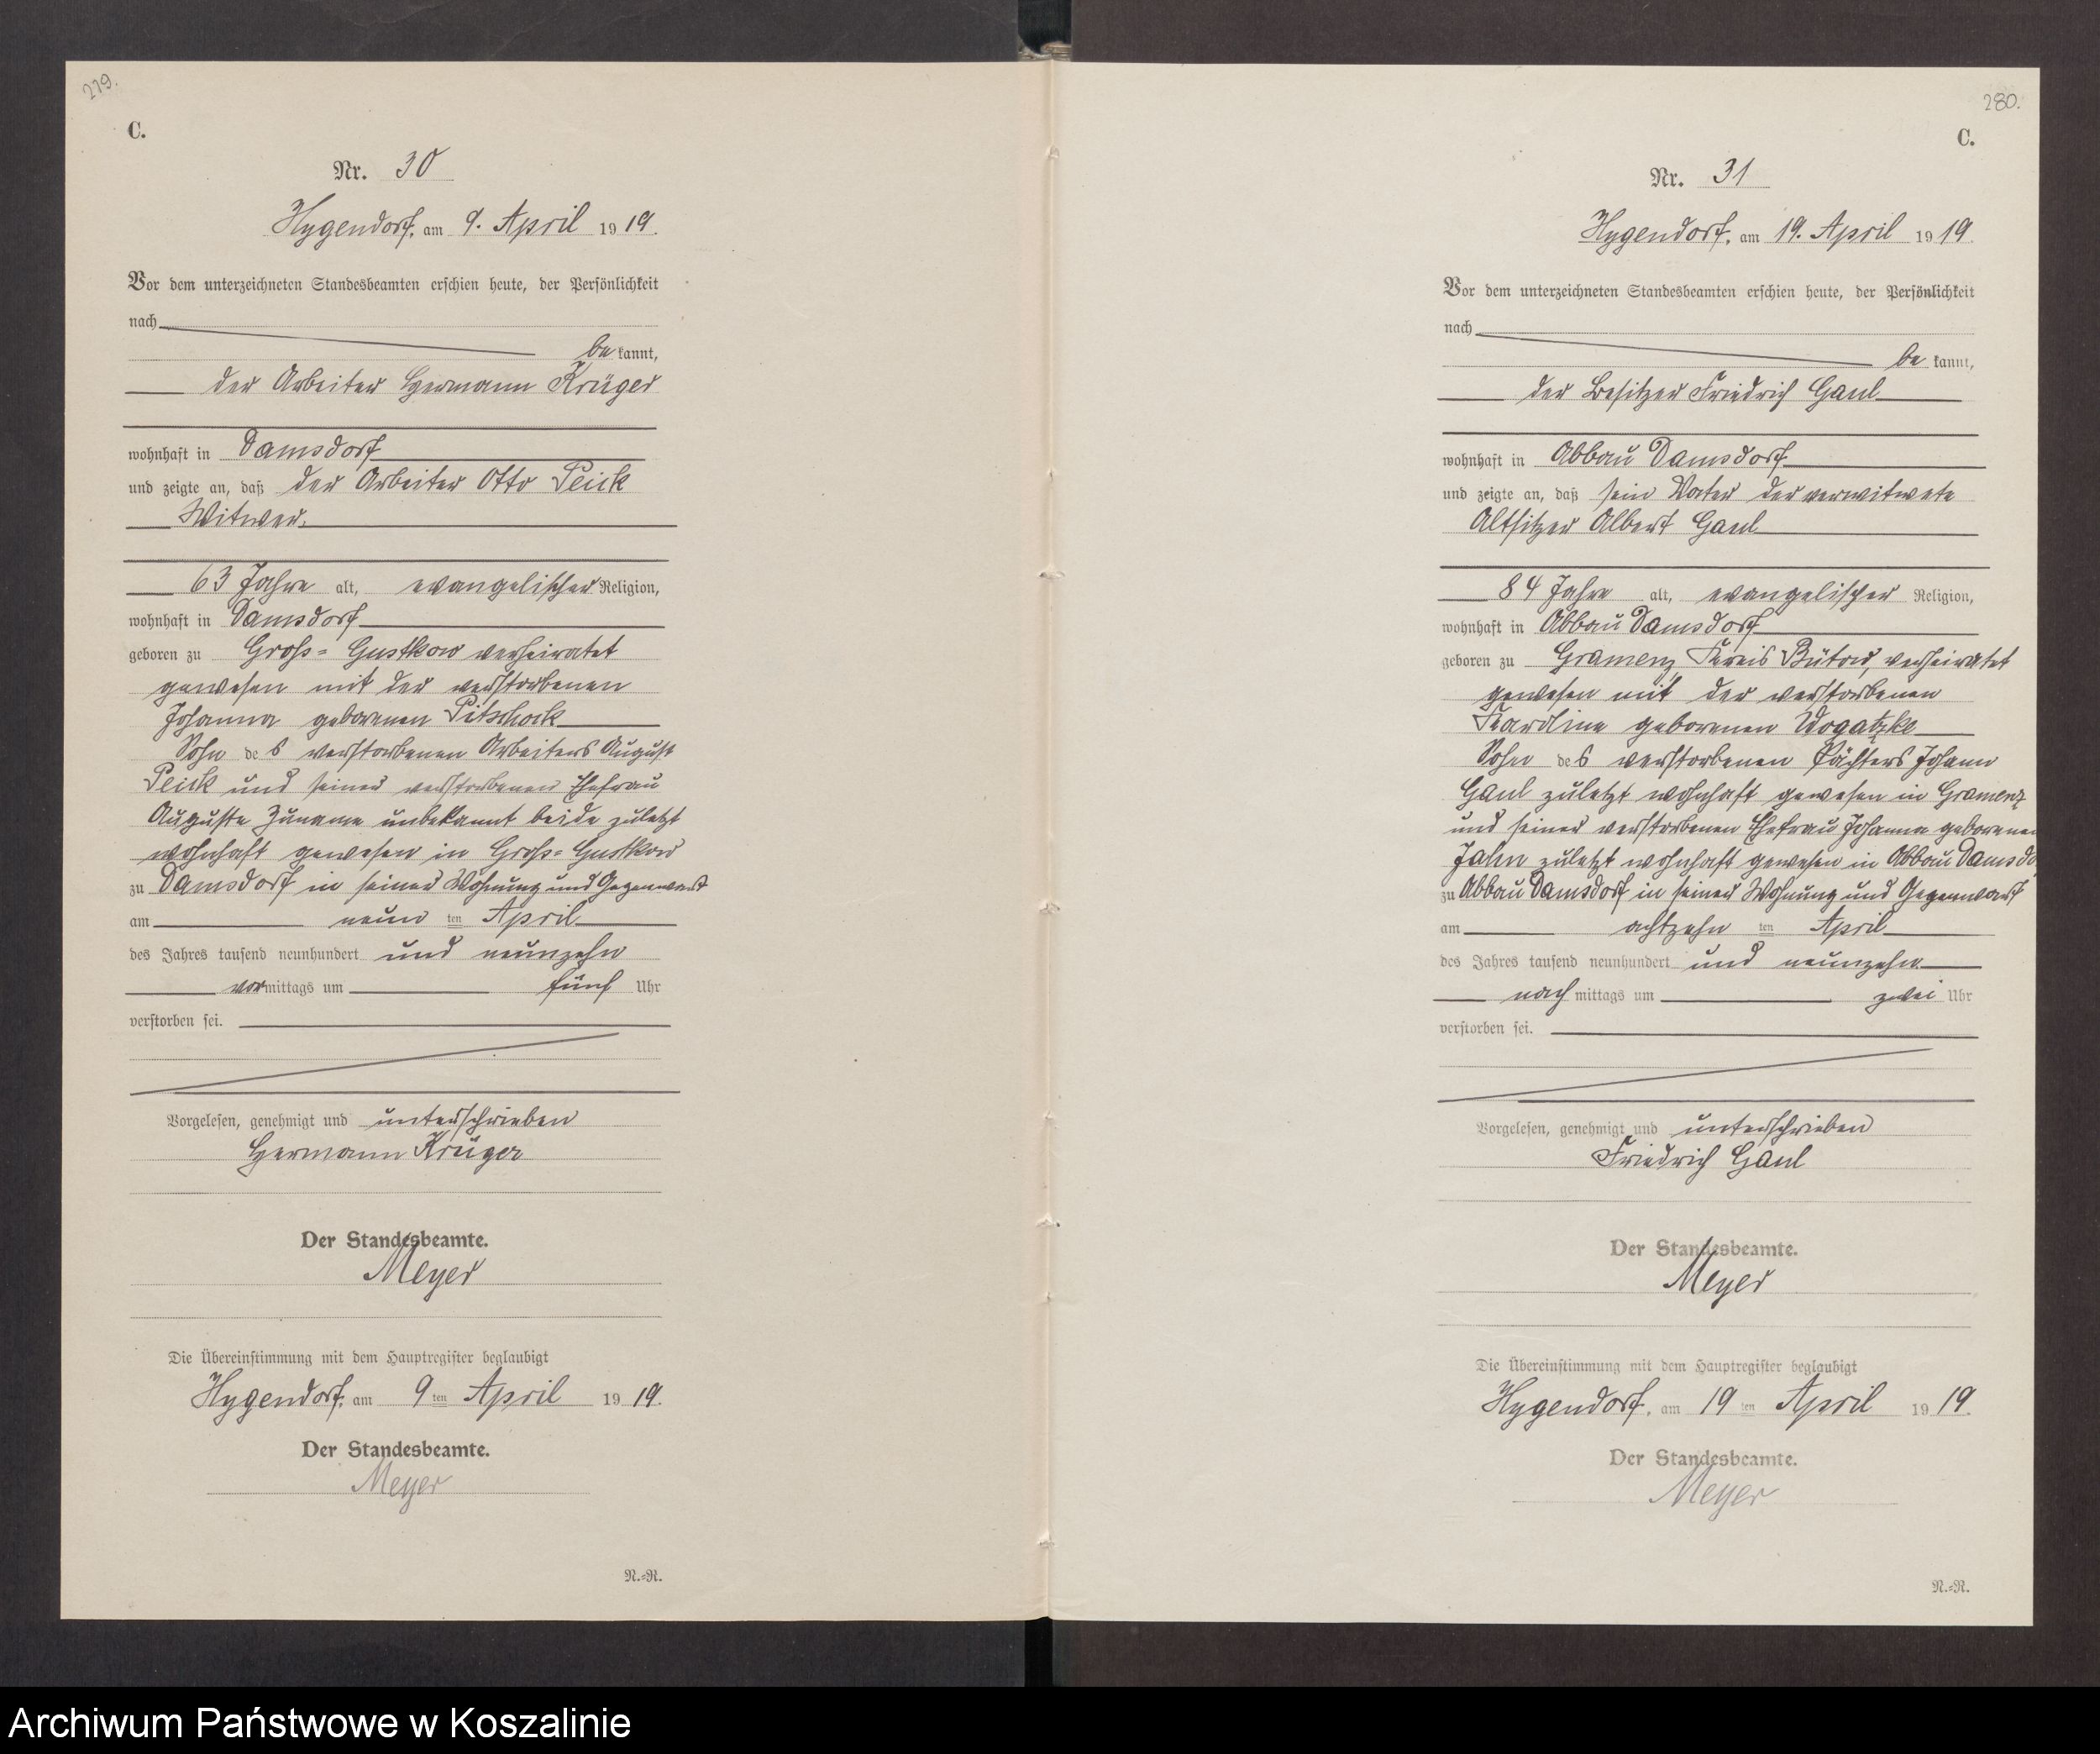 279.
C.
Nr. 30
Hygendorf, am 9. April 1919.
Vor dem unterzeichneten Standesbeamten erschien heute, der Persönlichkeit
nach
be kannt,
der Arbeiter Hermann Krüger
wohnhaft in Damsdorf
und zeigte an, daß der Arbeiter Otto Peick
Witwer.
63 Jahre alt, evangelischer Religion,
wohnhaft in Damsdorf
geboren zu Groß-Gustkow verheiratet
gewesen mit der verstorbenen
Johanna geborenen
Sohn des verstorbenen Arbeiters August
Peick und seiner verstorbenen Ehefrau
Auguste Zuname unbekannt beide zuletzt
wohnhaft gewesen in Groß-Gustkow
zu Damsdorf in seiner Wohnung und Gegenwart
am neun ten April
des Jahres tausend neunhundert und neunzehn
vormittags um fünf Uhr
verstorben sei.
Vorgelesen, genehmigt und unterschrieben
Hermann Krüger
Der Standesbeamte.
Meyer
Die Übereinstimmung mit dem Hauptregister beglaubigt
Hygendorf, am 9ten April 1919.
Der Standesbeamte.
Meyer
N.-R.
280.
C.
Nr. 31
Hygendorf, am 19. April 1919
Vor dem unterzeichneten Standesbeamten erschien heute, der Persönlichkeit
nach
be kannt,
der Besitzer Friedrich Gaul
wohnhaft in Abbau Damsdorf
und zeigte an, daß sein Vater der verwitwete
Altsitzer Albert Gaul
84 Jahre alt, evangelischer Religion,
wohnhaft in Abbau Damsdorf
geboren zu Gramenz Kreis Bütow, verheiratet
gewesen mit der verstorbenen
Karoline geborenen Wogatzke
Sohn des verstorbenen Pächters Johann
Gaul zuletzt wohnhaft gewesen in Gramenz
und seiner verstorbenen Ehefrau Johanna geborenen
Jahn zuletzt wohnhaft gewesen in Abbau Damsdo
zu Abbau Damsdorf in seiner Wohnung und Gegenwart
am achtzehn ten April
des Jahres tausend neunhundert und neunzehn
nachmittags um zwei Uhr
verstorben sei.
Vorgelesen, genehmigt und unterschrieben
Friedrich Gaul
Der Standesbeamte.
Meyer
Die Übereinstimmung mit dem Hauptregister beglaubigt
Hygendorf, am 19ten April 1919.
Der Standesbeamte.
Meyer
N.-R.
Archiwum Państwowe w Koszalinie